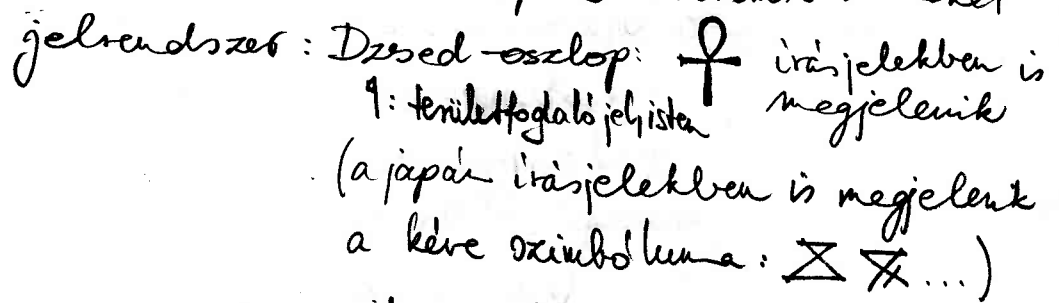 jelrendszer: Dzsed-oszlop: ☥ írásjelekben is
megjelenik
¶: területfoglaló jel, isten
(a japán írásjelekben is megjelenik
a kéve szimbóluma: ...)